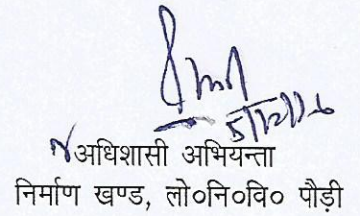 अधिशासी अभियन्ता
निर्माण खण्ड, लो०नि०वि० पौड़ी